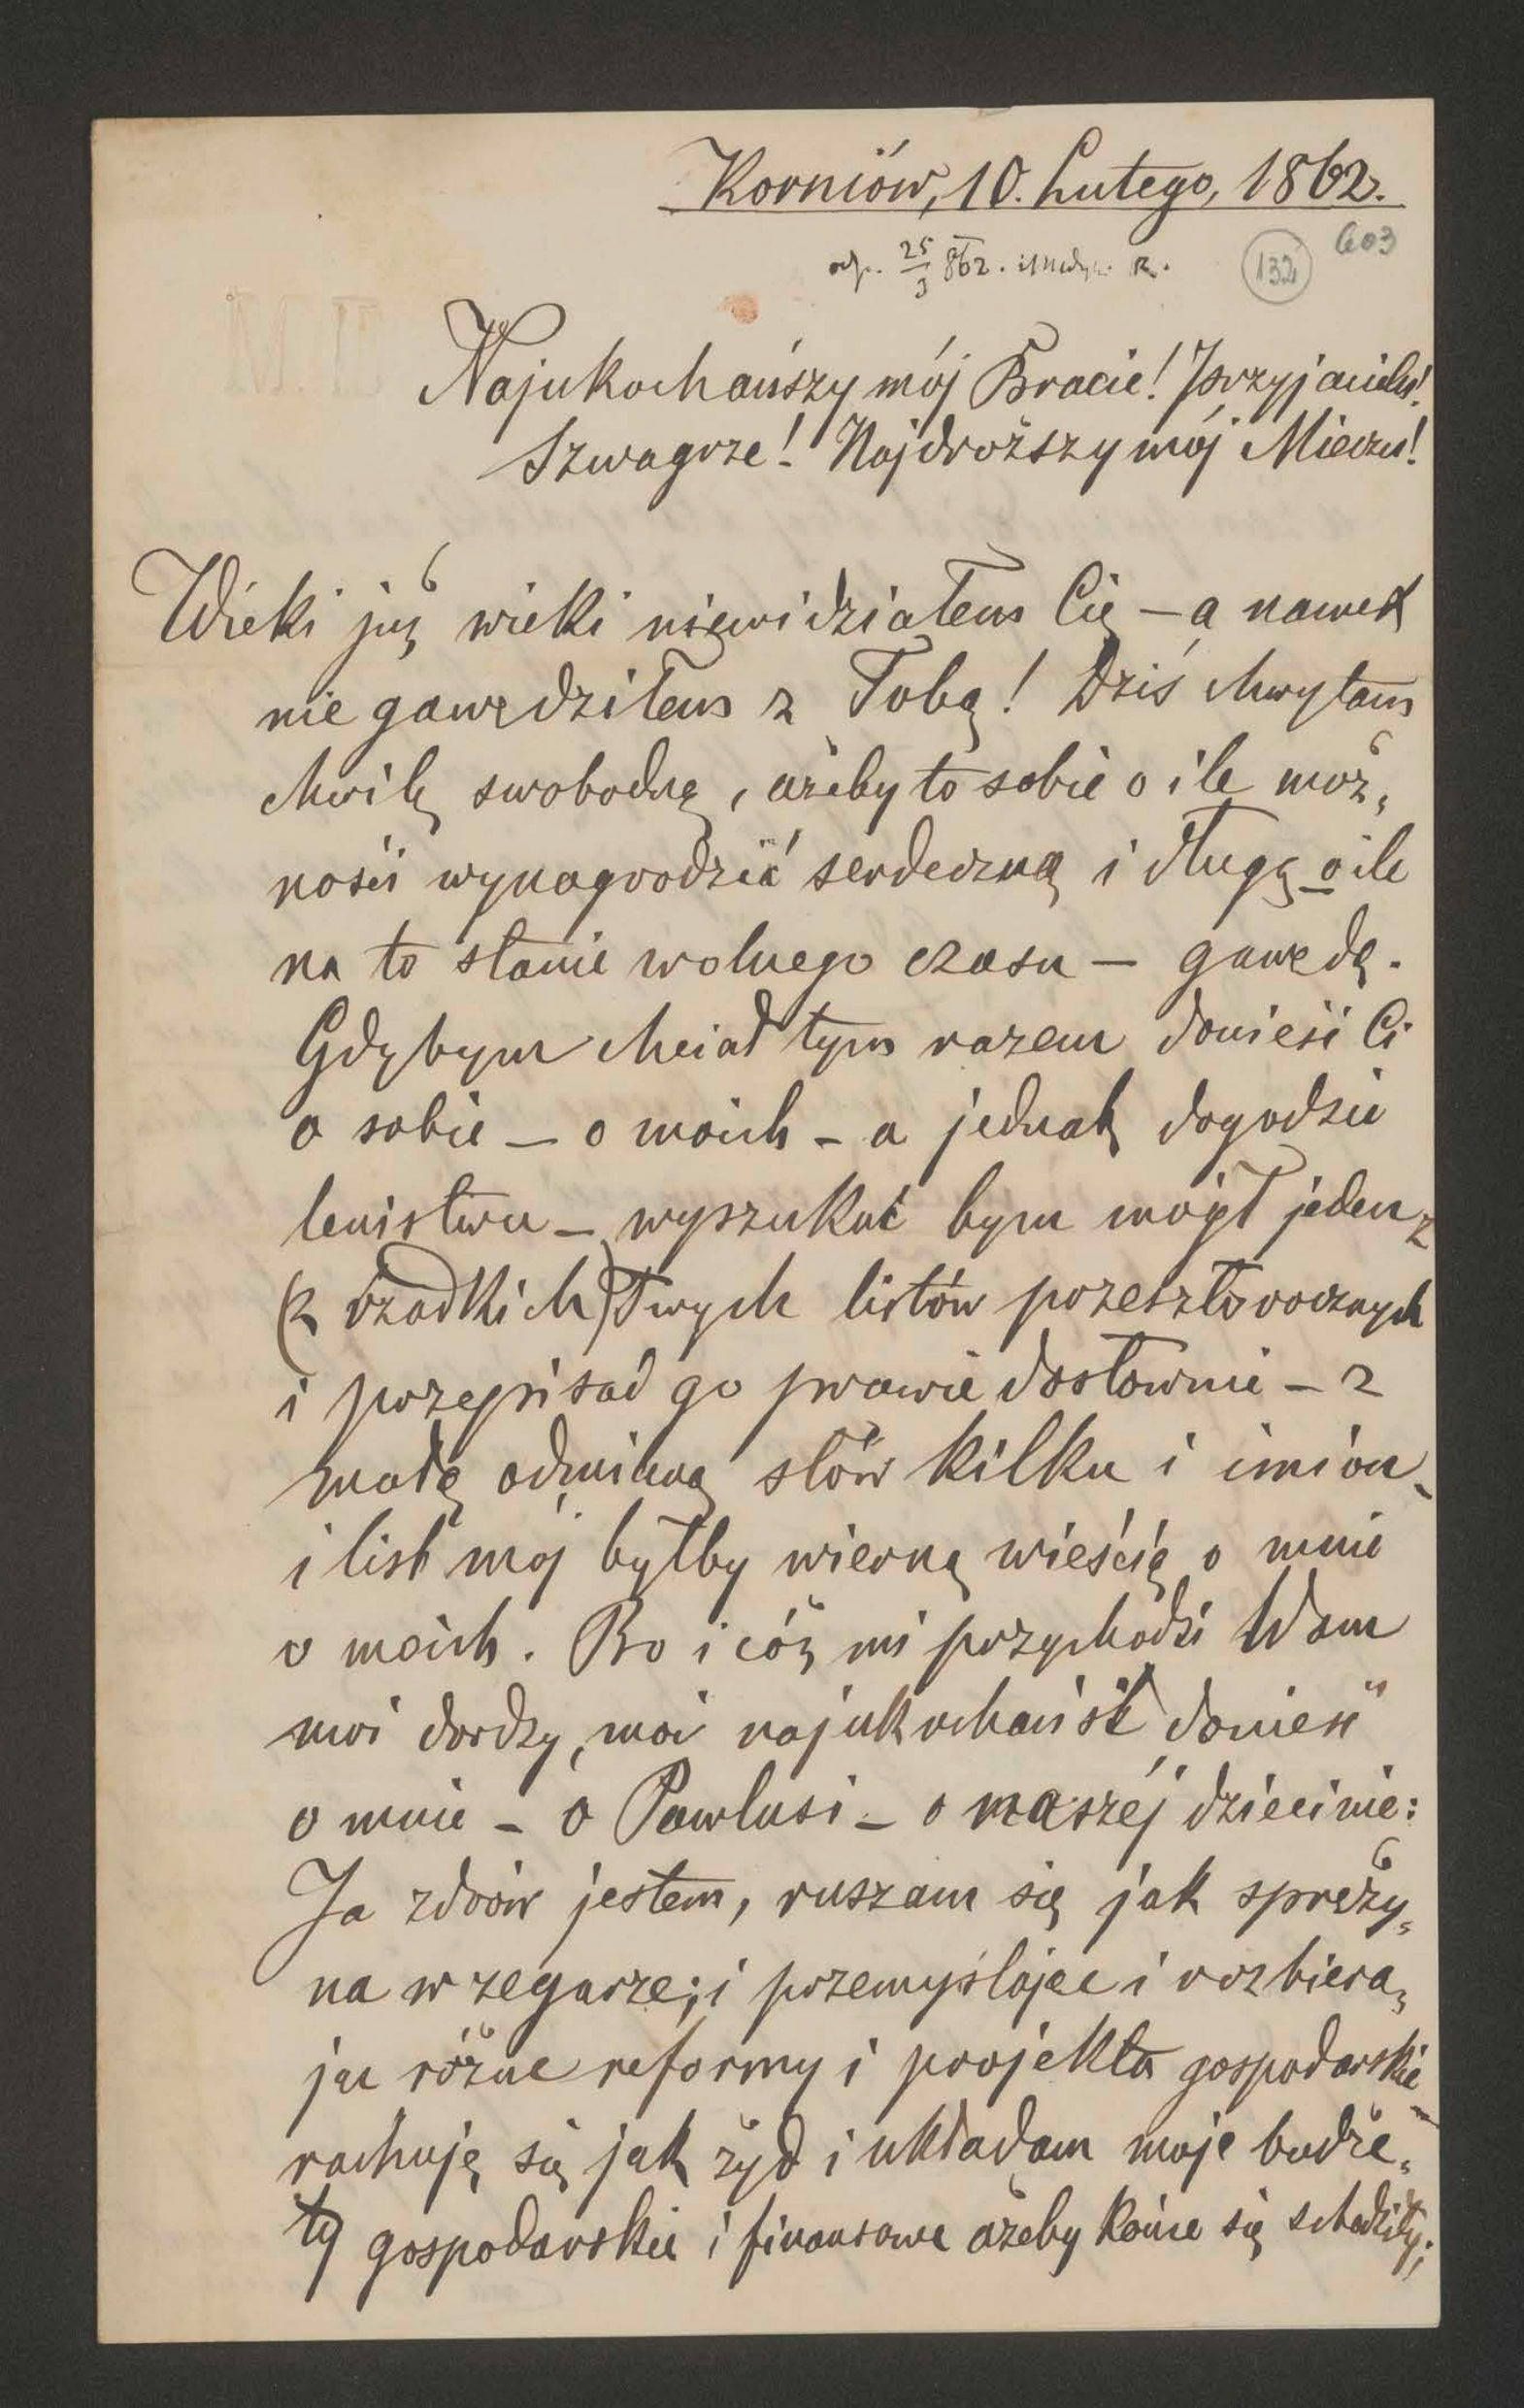 Korniów, 10. Lutego, 1862.
odp. 25/3 862. R.
132
603
Najukochańszy mój Bracie! Przyjacielu!
Szwagrze! Najdroższy mój Mieciu!
Wieki już wieki niewidziałem Cię — a nawet
nie gawędziłem z Tobą! Dziś chwytam
chwilę swobodną, ażeby to sobie o ile moż„
ności wynagrodzić serdeczną i długą o ile
na to stanie wolnego czasu — gawędą.
Gdybym chciał tym razem donieść Ci
o sobie — o moich — a jednak dogodzić
lenistwu — wyszukać bym mógł jeden z
(z rzadkich) Twych listów przeszłorocznych
i przepisać go prawie dosłownie — z
małą odmianą słów kilku i imion
i list mój byłby wierną wieścią o mnie
o moich. Bo i cóż mi przychodzi Wam
moi drodzy, moi najukochańsi donieść
o mnie — o Pawlusi — o naszéj dziecinie:
Ja zdrów jestem, ruszam się jak spręży„
na w zegarze; i przemyślając i rozbiera„
jąc różne reformy i projekta gospodarskie
rachuję się jak żyd i układam moje budże„
ty gospodarskie i finansowe ażeby końce się schodziły;